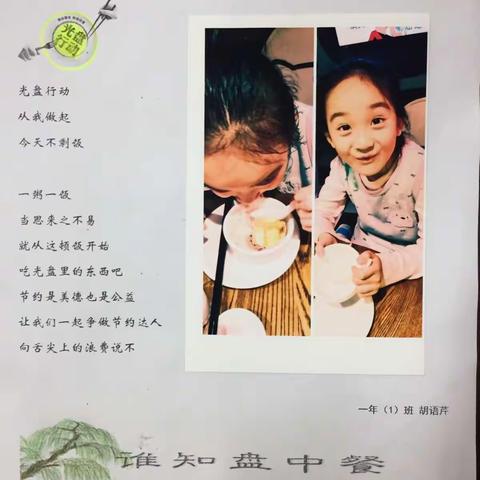 光盘
行动
光盘行动
从我做起
今天不剩饭
一粥一饭
当思来之不易
就从这顿饭开始
吃光盘里的东西吧
节约是美德也是公益
让我们一起争做节约达人
向舌尖上的浪费说不
一年（1）班 胡语芹
谁知盘中餐